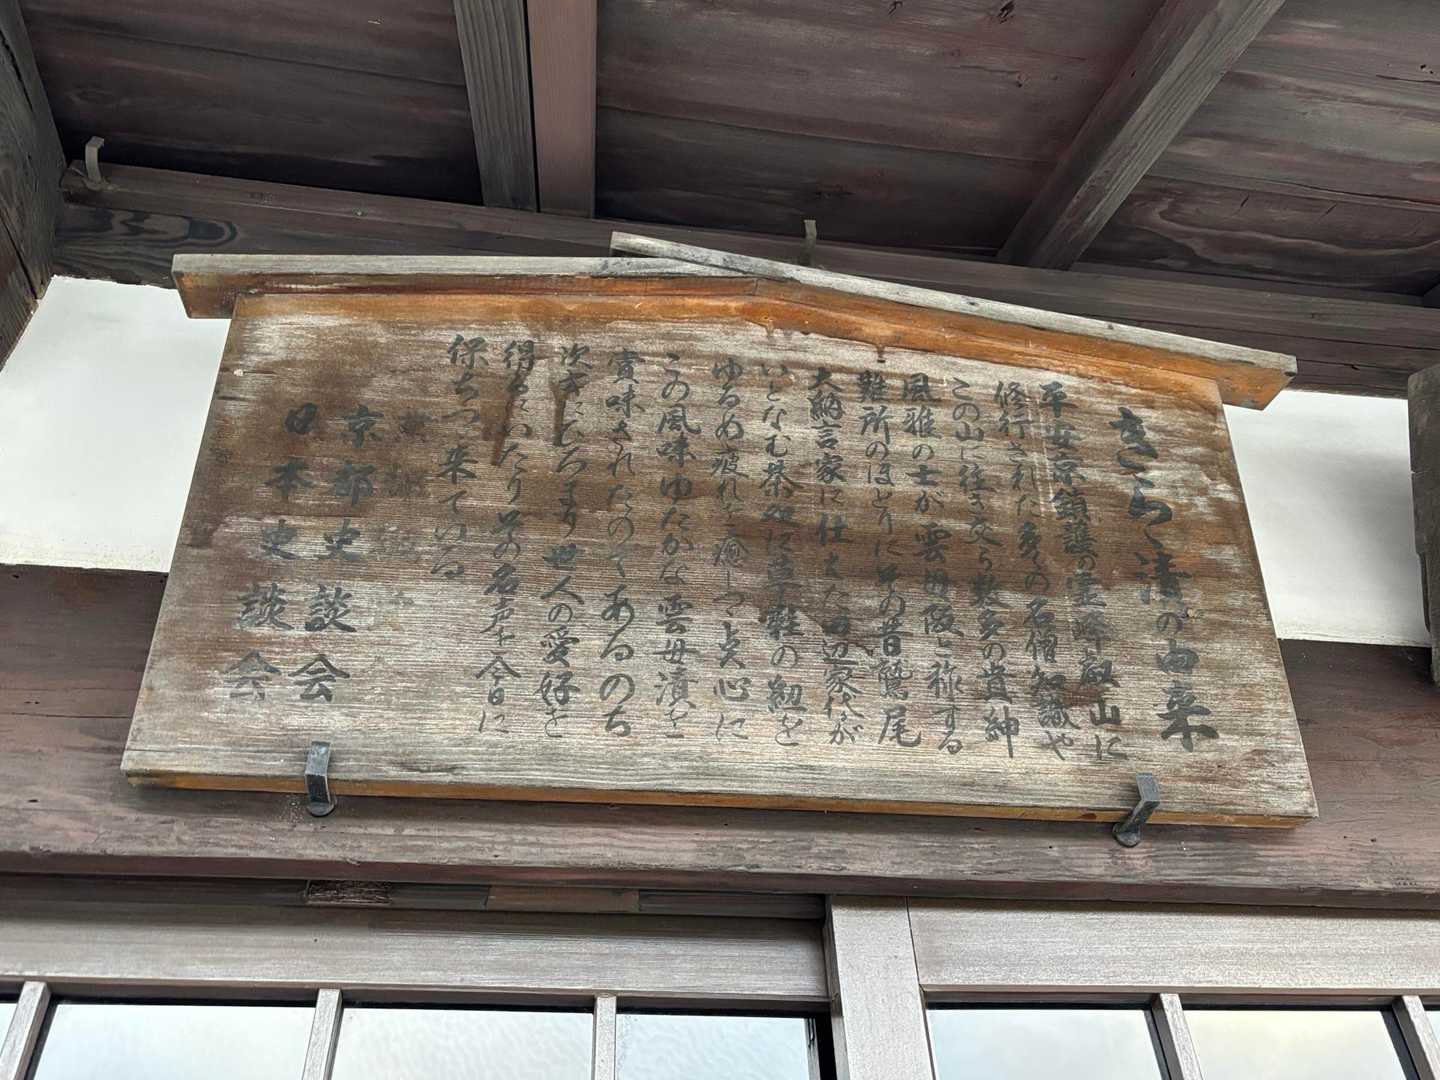 きらゝ漬の由来
平安京鎮護の霊峰叡山に
修行された多くの名僧知識や
この山に往き交ら数多の貴紳
風雅の士が雲母阪と称する
難所のほとりにその昔鷲尾
大納言家に仕えた田辺家代々が
いとなむ茶処に草鞋の紐を
ゆるめ疲れを癒しつゝ点心に
この風味ゆたかな雲母漬を
賞味されたのてあるのち
次㐧にひろまり世人の愛好を
得るにいたりその名声を今日に
保ちつゝ来ている
京都史談会
日本史談会